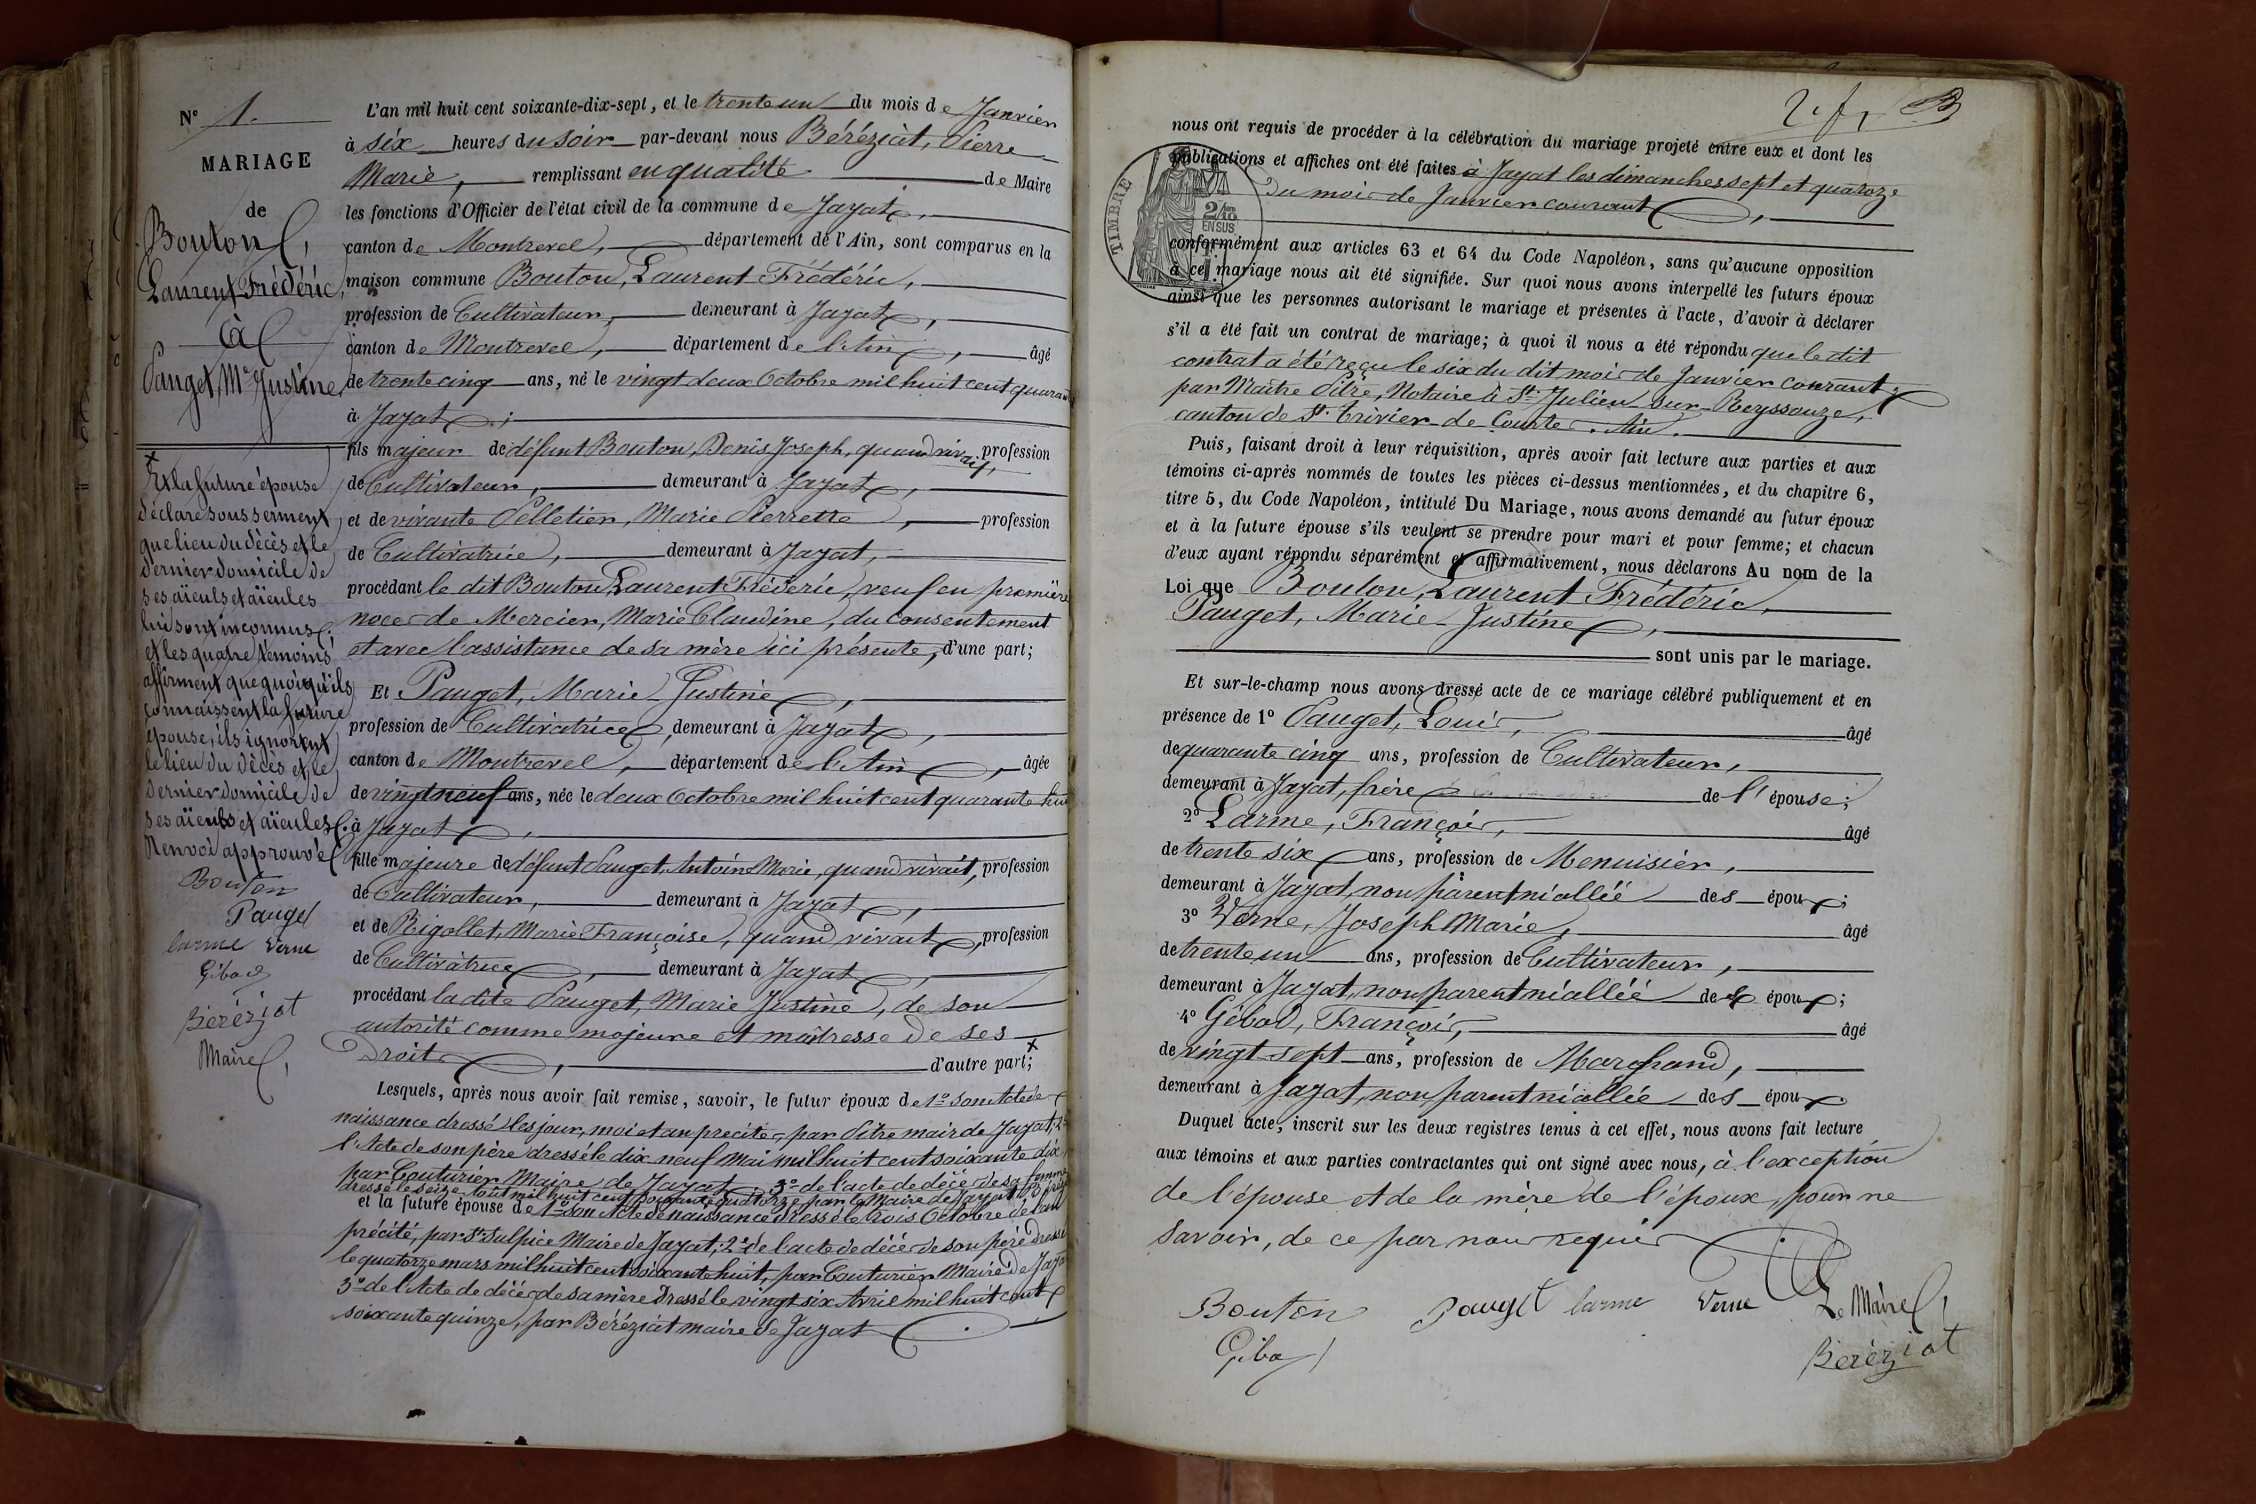 N° 1.
MARIAGE
de
Bouton,
Laurent Frédéric,
À
Pauget, Mie Justine
L'an mil huit cent soixante-dix-sept, et le trente un du mois de Janvier
à six heures du soir par-devant nous Béréziat, Pierre
Marie, remplissant en qualité de Maire
les fonctions d'Officier de l'état civil de la commune de Jayat,
canton de Montrevel, département de l'Ain, sont comparus en la
maison commune Bouton, Laurent Frédéric,
profession de Cultivateur, demeurant à Jayat,
canton de Montrevel, département de l'Ain, âgé
de trente cinq ans, né le vingt deux Octobre mil huit cent quarante
à Jayat;
fils majeur de défunt Bouton, Denis Joseph, quand vivait, profession
de Cultivateur, demeurant à Jayat,
et de vivante Pelletier, Marie Pierrette, profession
de Cultivatrice, demeurant à Jayat,
procédant le dit Bouton Laurent Frédéric, veuf en première
noces de Mercier, Marie Claudine, du consentement
et avec l'assistance de sa mère ici présente, d'une part;
Et Pauget, Marie Justine,
profession de Cultivatrice, demeurant à Jayat,
canton de Montrevel, département de l'Ain, âgée
de vingt neuf ans, née le deux Octobre mil huit cent quarante huit
à Jayat,
fille majeure de défunt Pauget, Antoine Marie, quand vivait, profession
de Cultivateur, demeurant à Jayat,
et de Rigollet, Marie Françoise, quand vivait, profession
de Cultivatrice, demeurant à Jayat,
procédant la dite Pauget, Marie Justine, de son
autorité comme majeure et maîtresse de ses
droits, d'autre part; x
Lesquels, après nous avoir fait remise, savoir, le futur époux de 1° son Acte de
naissance dressé les jour, moi et an precités, par Pitre maire de Jayat; 2°
l'Acte de son père dressé le dix neuf Mai mil huit cent soixante dix
par Couturier Maire de Jayat; 3° de l'acte de décès de sa femme
dressé le seize Août mil huit cent soixante quatorze par le Maire de Jayat
et la future épouse de 1° son Acte de naissance dressé le trois Octobre de l'an
précité, par St Sulpice Maire de Jayat; 2° de l'acte de décès de son père dressé
le quatorze mars mil huit cent soixante huit, par Couturier Maire de Jayat
3° de l'Acte de décès de sa mère dressé le vingt six Avril mil huit cent
soixante quinze, par Béréziat maire de Jayat
x Et la future épouse
déclare sous serment
que lieu du décès et le
dernier domicile de
ses aïeuls et aïeules
lui sont inconnus.
et les quatre témoins
affirment que quoiqu'ils
connaissent la future
épouse, ils ignorent
le lieu du décès et le
dernier domicile de
ses aïeuls et aïeules.
Renvoi approuvé
Bouton
Pauget
larme Verne
Gibod
Béréziat
Maire,
2e f,
nous ont requis de procéder à la célébration du mariage projeté entre eux et dont les
publications et affiches ont été faites à Jayat les dimanches sept et quatorze
du mois de Janvier courant,
TIMBRE
2/10
EN SUS
conformément aux articles 63 et 64 du Code Napoléon, sans qu'aucune opposition
à ce mariage nous ait été signifiée. Sur quoi nous avons interpellé les futurs époux
ainsi que les personnes autorisant le mariage et présentes à l'acte, d'avoir à déclarer
s'il a été fait un contrat de mariage; à quoi il nous a été répondu que le dit
contrat a été reçu le six du dit mois de Janvier courant
par Maître Pitre, Notaire à St Julien-sur-Reyssouze,
canton de St Trivier-de-Courtes. Ain.
Puis, faisant droit à leur réquisition, après avoir fait lecture aux parties et aux
témoins ci-après nommés de toutes les pièces ci-dessus mentionnées, et du chapitre 6,
titre 5, du Code Napoléon, intitulé Du Mariage, nous avons demandé au futur époux
et à la future épouse s'ils veulent se prendre pour mari et pour femme; et chacun
d'eux ayant répondu séparément et affirmativement, nous déclarons Au nom de la
Loi que Bouton, Laurent Frédéric,
Pauget, Marie-Justine,
sont unis par le mariage.
Et sur-le-champ nous avons dressé acte de ce mariage célébré publiquement et en
présence de 1° Pauget, Louis, âgé
de quarante cinq ans, profession de Cultivateur,
demeurant à Jayat, frère de l'épouse;
2° Larme, François, âgé
de trente six ans, profession de Menuisier,
demeurant à Jayat, non parent ni allié des époux;
3° Verne, Joseph Marie, âgé
de trente un ans, profession de Cultivateur,
demeurant à Jayat, non parent ni allié des époux;
4° Gibod, François, âgé
de vingt sept ans, profession de Marchand,
demeurant à Jayat, non parent ni allié des époux
Duquel acte, inscrit sur les deux registres tenus à cet effet, nous avons fait lecture
aux témoins et aux parties contractantes qui ont signé avec nous, à l'exception
de l'épouse et de la mère de l'époux, pour ne
savoir, de ce par nous requis
Bouton Pauget larme Verne Le Maire,
Gibod Béréziat